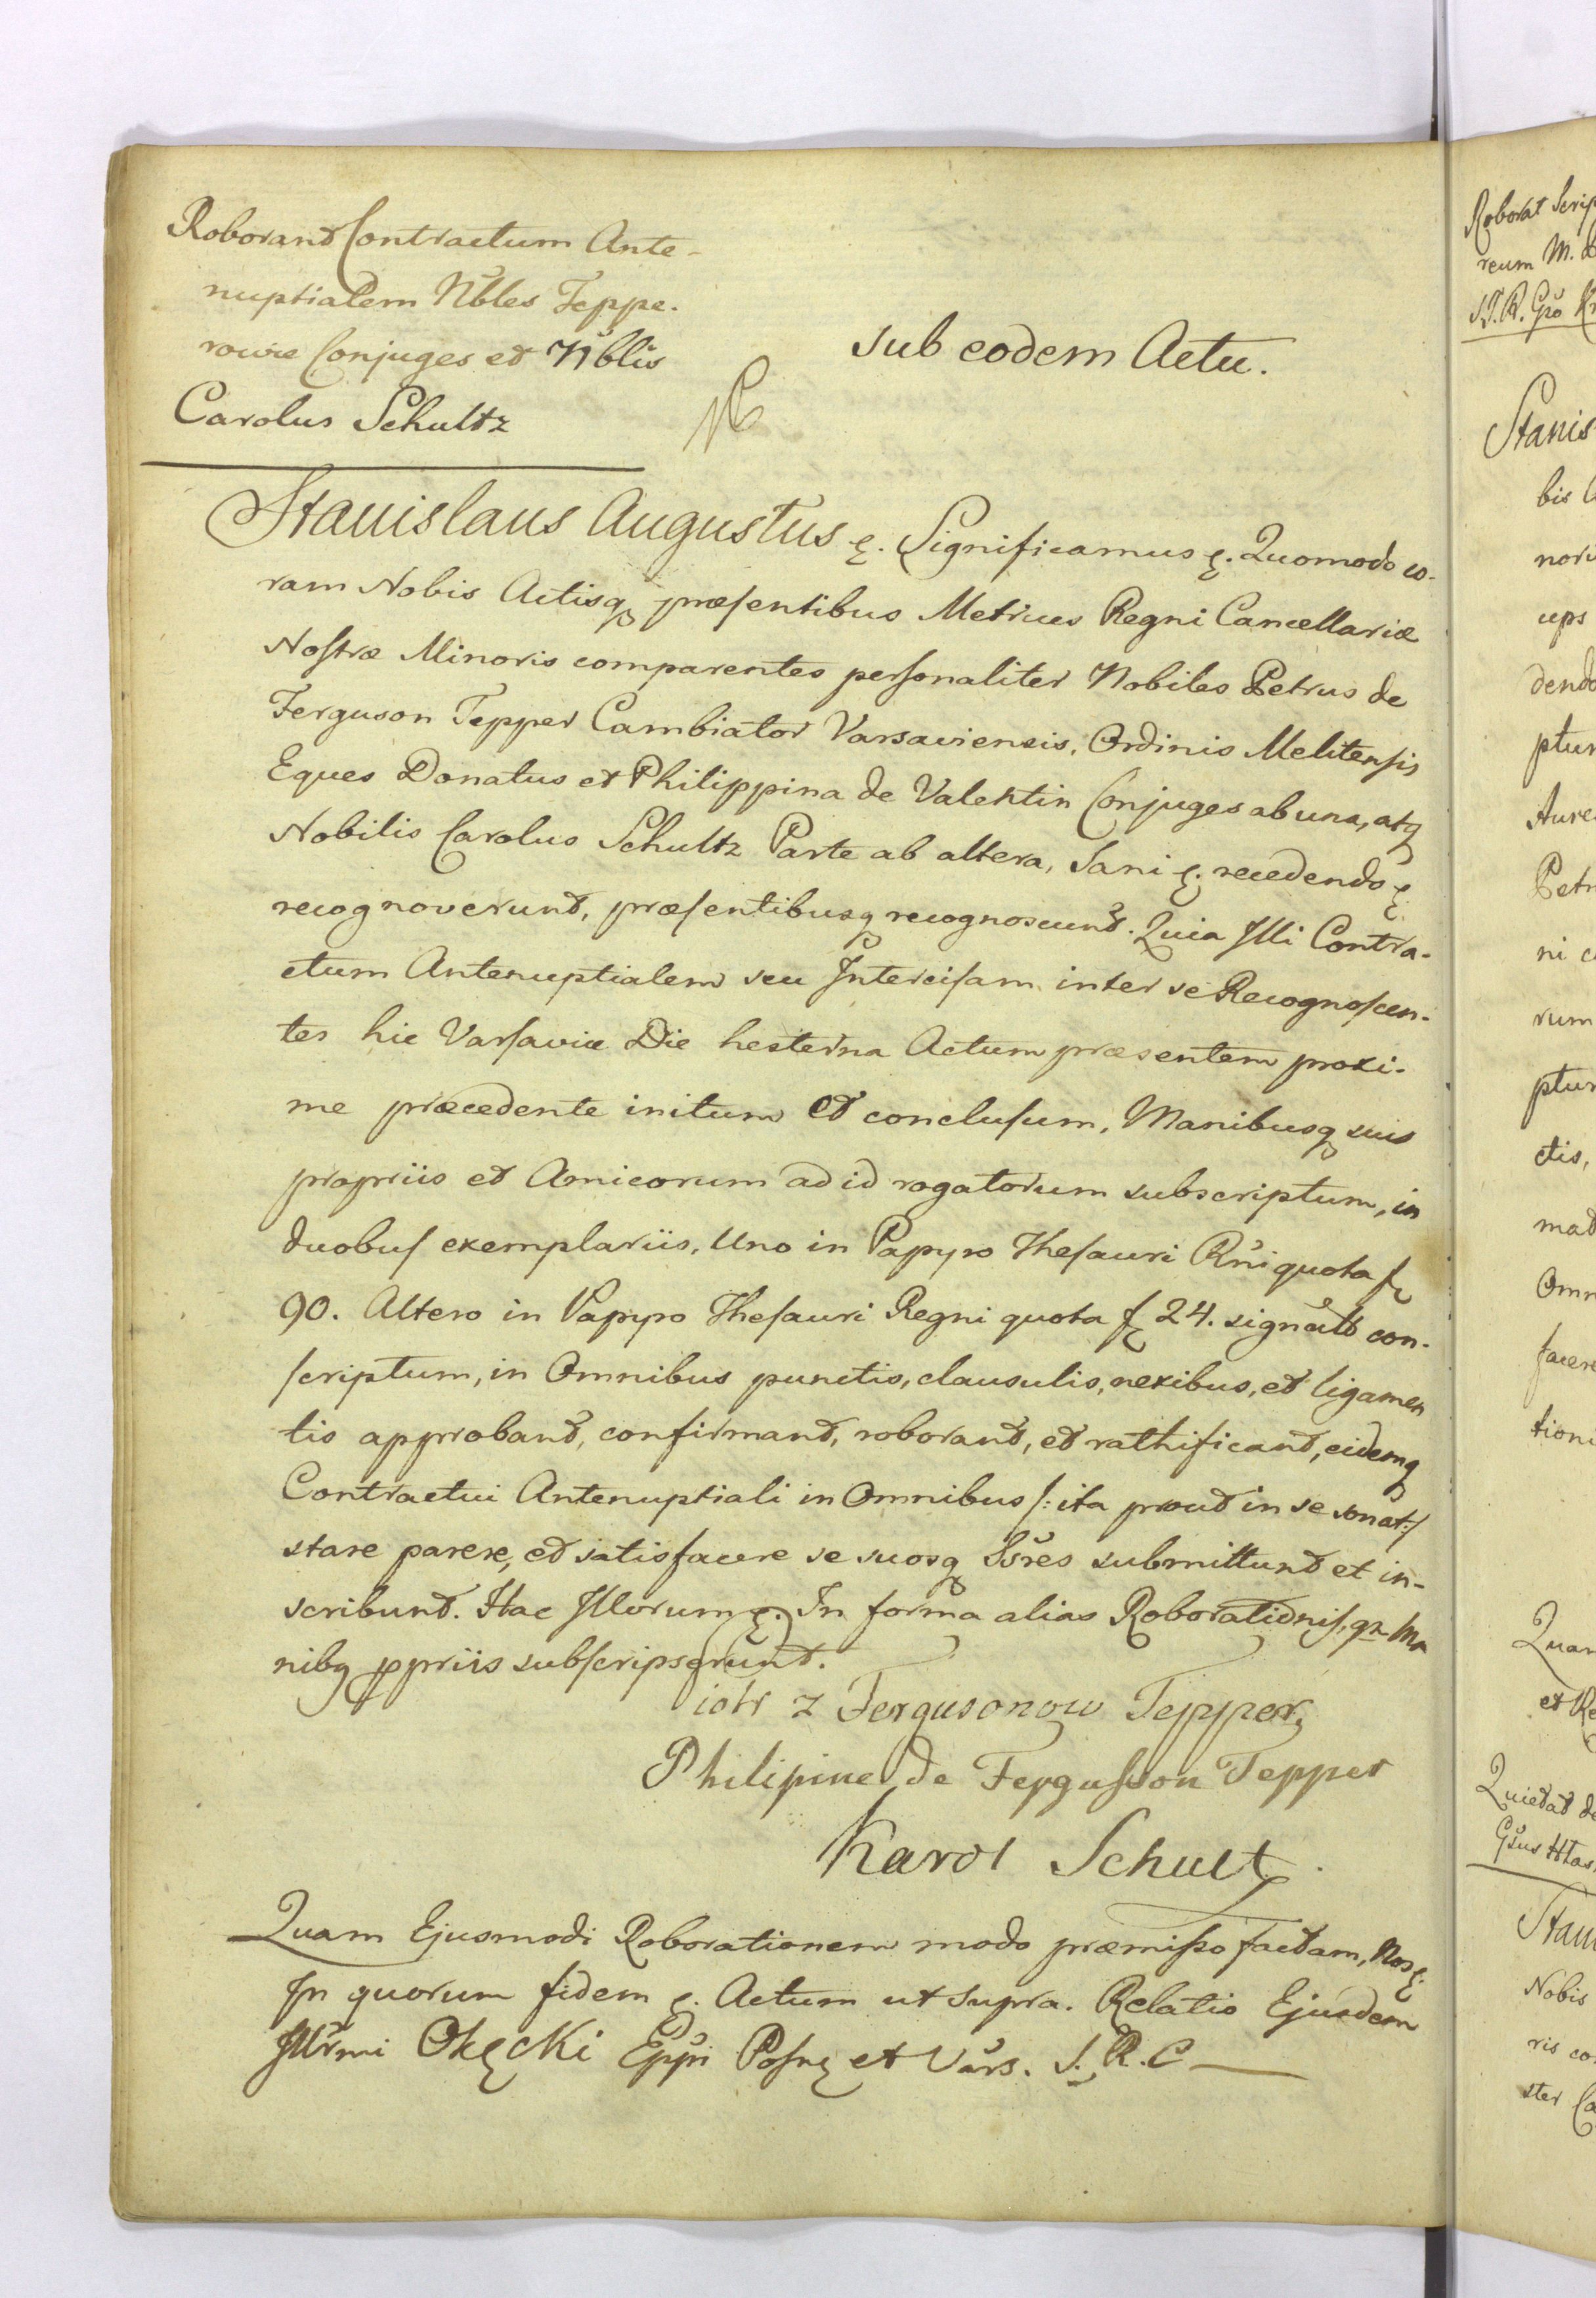 Roborant Contractum Ante-
nuptialem Nbles Teppe-
rowie Conjuges et Nblis
Carolus Schultz
sub eodem Actu.
Stanislaus Augustus &. Significamus &. Quomodo co-
ram Nobis Actisq præsentibus Metrices Regni Cancellariæ
Nostræ Minoris comparentes personaliter Nobiles Petrus de
Ferguson Tepper Cambiator Varsaviensis, Ordinis Melitensis
Eques Donatus et Philippina de Valentin Conjuges ab una, atq
Nobilis Carolus Schultz Parte ab altera, Sani &. recedendo &.
recognoverunt, præsentibusq recognoscunt. Quia Illi Contra-
ctum Antenuptialem seu Intercisam inter se Recognoscen-
tes hic Varsaviæ Die hesterna Actum præsentem proxi-
me præcedente initum et conclusum, Manibusq suis
propriis et Amicorum ad id rogatorum subscriptum, in
duobus exemplariis, Uno in Papyro Thesauri Rni quota f
90. Altero in Papyro Thesauri Regni quota f 24. signato con-
scriptum, in Omnibus punctis, clausulis, nexibus, et ligamen
tis approbant, confirmant, roborant, et rathificant, eidemq
Contractui Antenuptiali in Omnibus /: ita prout in se sonat :/
stare parere, et satisfacere se suosq Ssres submittunt et in-
scribunt. Hac Illorum &. In forma alias Roborationis, qn Ma
nibq ppriis subscripserunt.
Piotr z Fergusonow Tepper
Philipine de Fergusson Tepper
Karol Schultz
Quam Ejusmodi Roborationem modo præmisso factam, Nos &.
In quorum fidem &. Actum ut Supra. Relatio Ejusdem
Illrmi Okęcki Eppi Posn et Vars. S. R. C
Roborat Scrip
reum M.
S. R.
Stanis
bis
nori
ceps
dendo
ptur
Aure
Petr
ni c
rum
ptur
ctis,
mad
Omn
facere
tioni
Quam
et Re
Quietat de
Gsus
Stani
Nobis
ris co
ster Ca